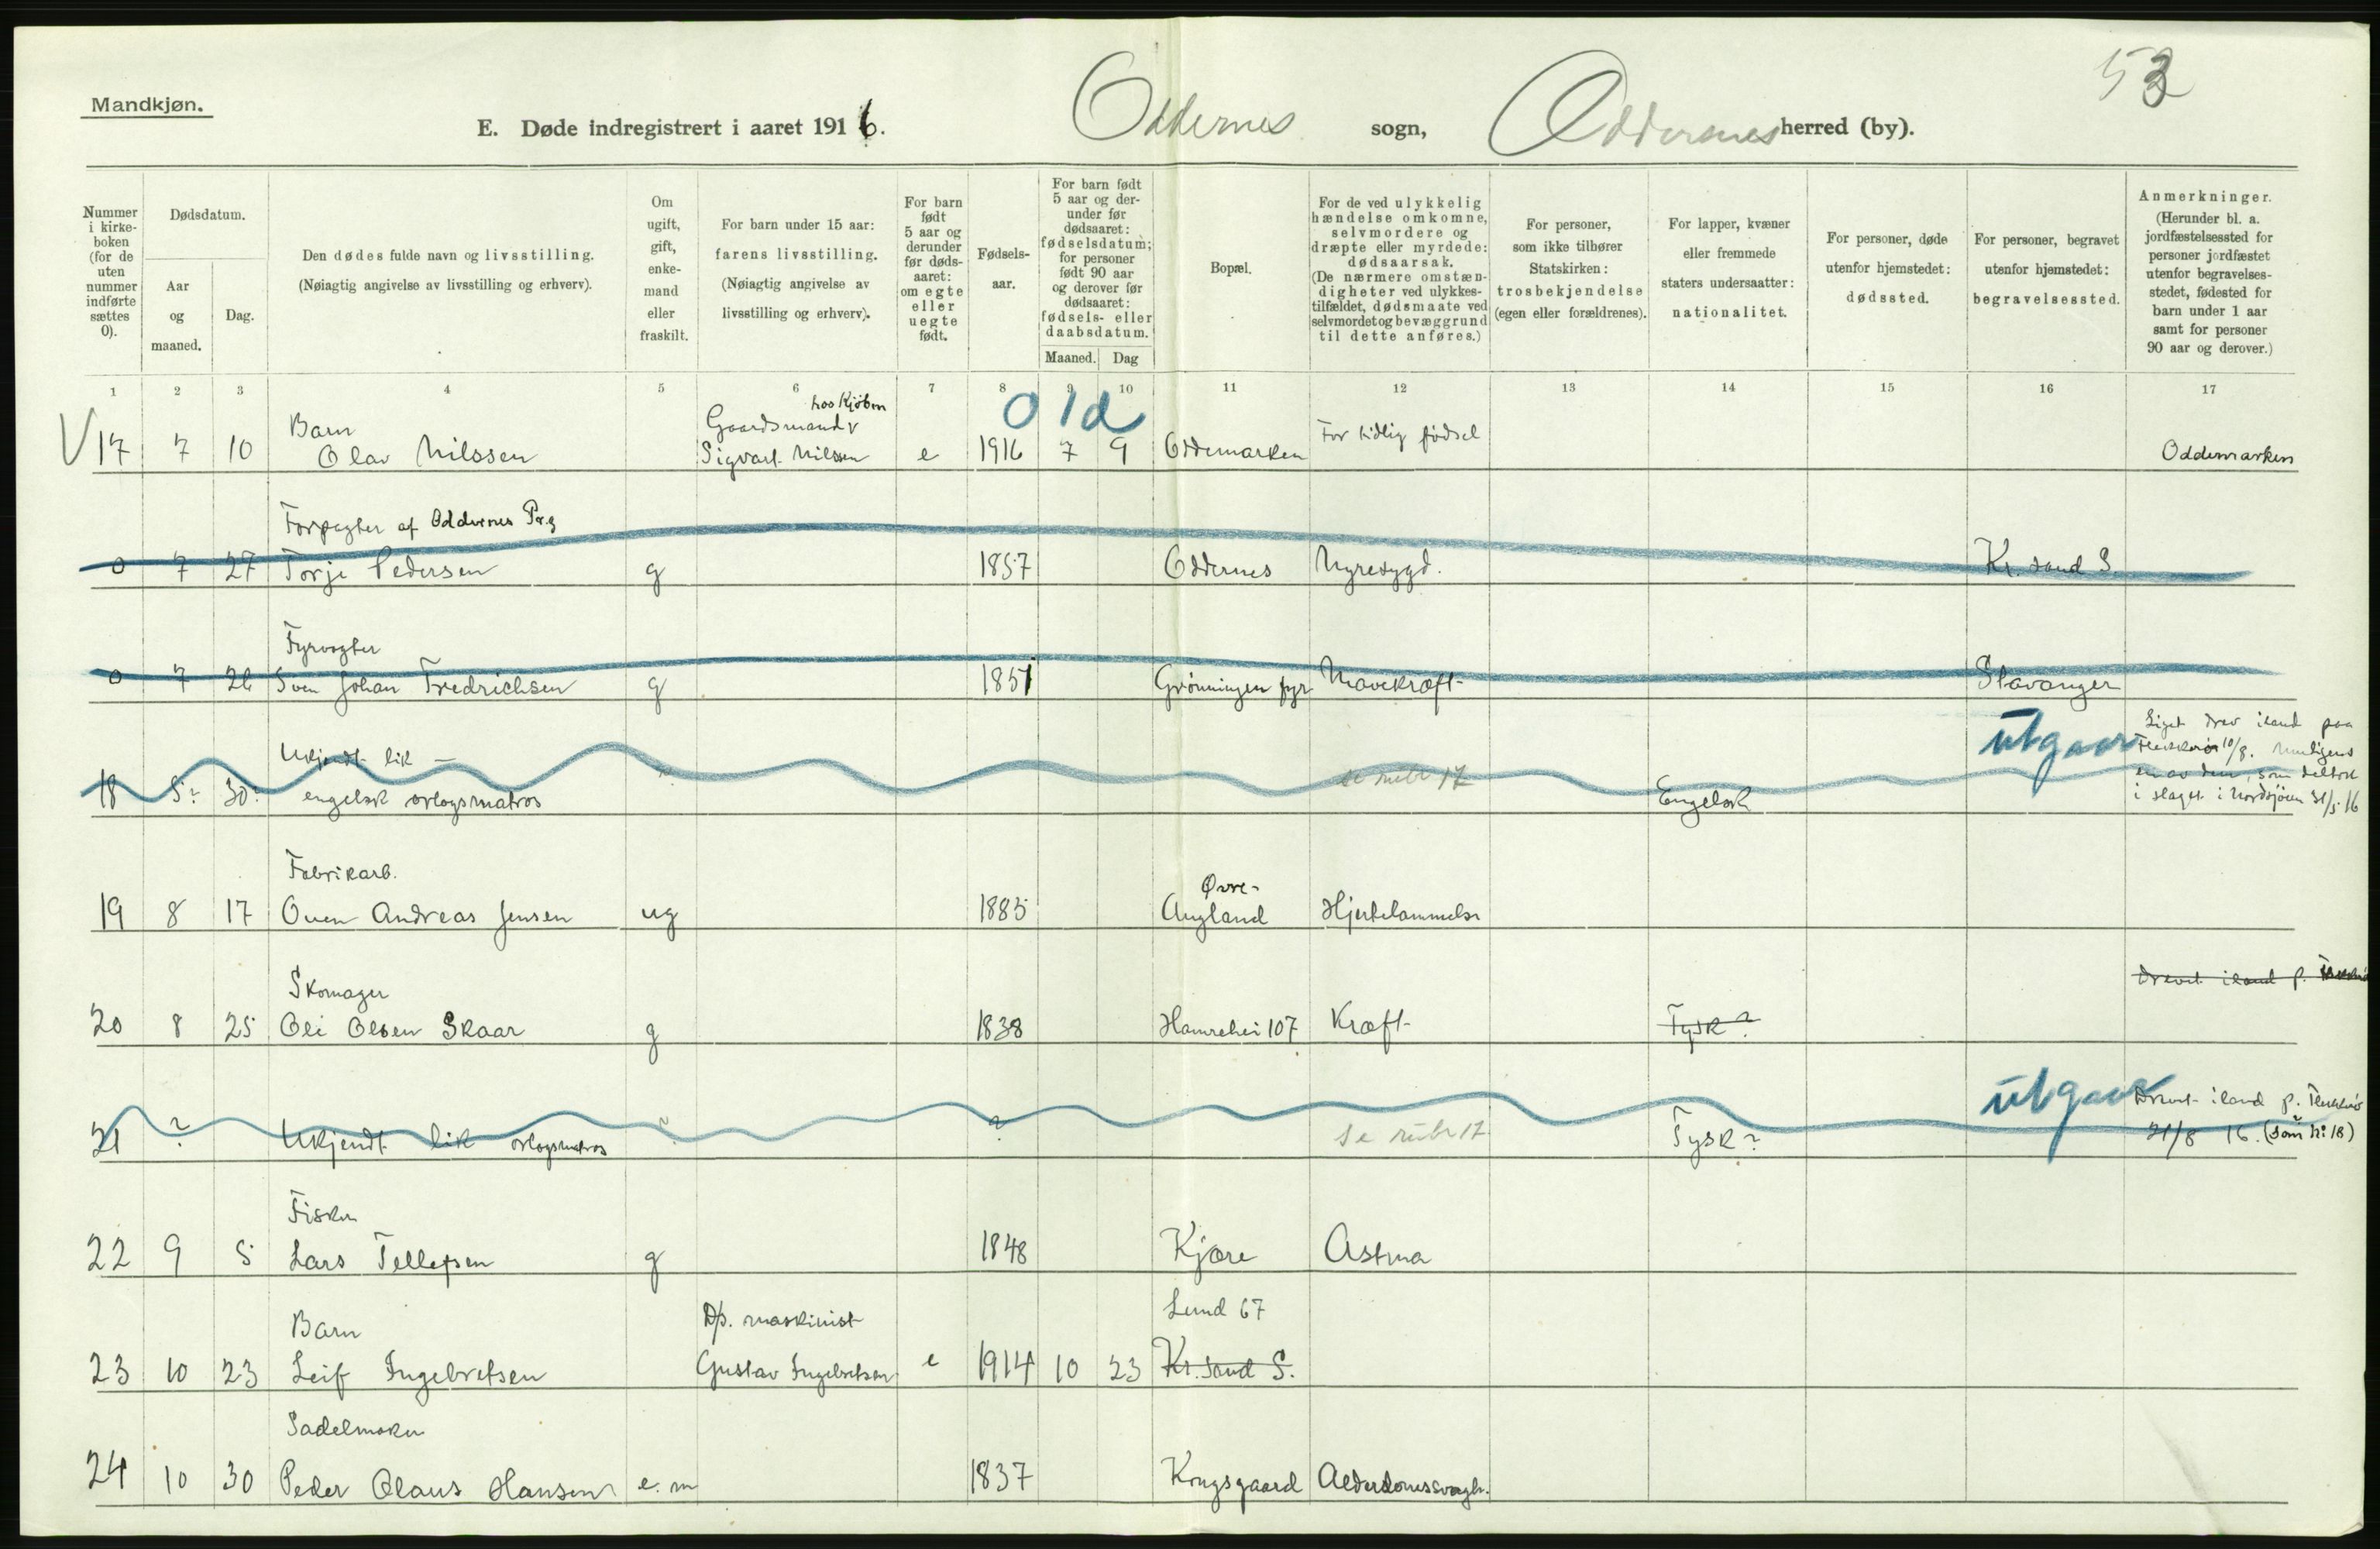 53
Mandkjøn.
E. Døde indregistrert i aaret 1916. Oddernes sogn, Oddernes herred (by).
Nummer i kirkeboken (for de uten nummer indførte sættes 0).
Dødsdatum.
Aar og maaned.
Dag.
Den dødes fulde navn og livsstilling.
(Nøiagtig angivelse av livsstilling og erhverv).
Om ugift, gift, enkemand eller fraskilt.
For barn under 15 aar: farens livsstilling.
(Nøiagtig angivelse av livsstilling og erhverv).
For barn født 5 aar og derunder før dødsaaret: om egte eller uegte født.
Fødselsaar.
For barn født 5 aar og derunder før dødsaaret: fødselsdatum; for personer født 90 aar og derover før dødsaaret: fødsels- eller daabsdatum.
Maaned. Dag
Bopæl.
For de ved ulykkelig hændelse omkomne, selvmordere og dræpte eller myrdede: dødsaarsak.
(De nærmere omstændigheter ved ulykkestilfældet, dødsmaate ved selvmordet og bevæggrund til dette anføres.)
For personer, som ikke tilhører Statskirken: trosbekjendelse (egen eller forældrenes).
For lapper, kvæner eller fremmede staters undersaatter: nationalitet.
For personer, døde utenfor hjemstedet: dødssted.
For personer, begravet utenfor hjemstedet: begravelsessted.
Anmerkninger.
(Herunder bl. a. jordfæstelsessted for personer jordfæstet utenfor begravelsesstedet, fødested for barn under 1 aar samt for personer 90 aar og derover.)
1 2 3 4 5 6 7 8 9 10 11 12 13 14 15 16 17
hos Kjøbm
Barn Gaardsmand v 0 1d For tidlig fødsel
V 17 7 10 Olav Nilssen Sigvart Nilssen e 1916 7 9 Oddemarken Oddemarken
Forpagter af Oddernes Prg
0 7 27 Torje Pedersen g 1857 Oddernes Nyresygd. Kr.sand S.
Fyrvogter
0 7 26 Sven Johan Fredrichsen g 1851 Grønningen fyr Mavekræft Stavanger
Ukjendt lik — utgaar Liget drev iland paa
Flekkerøi 10/8. Muligens
en av dem, som deltok
18 5? 30? engelsk orlogsmatros ? se rubr 17 Engelsk i slaget i Nordsjøen 31/5 16
Fabrikarb. Øvre-
19 8 17 Oven Andreas Jensen ug 1885 Augland Hjertelammelse
Skomager Drevet iland p.
20 8 25 Ole Olsen Skaar g 1838 Hamrehei 107 Kræft Tysk?
utgaar Drevet iland p. Flekkerø
21 ? Ukjendt lik orlogsmatros ? ? se rubr 17 Tysk? 31/8 16. (som nr 18)
Fisker
22 9 5 Lars Tellefsen g 1848 Kjære Astma
Barn Dp. maskinist Lund 67
23 10 23 Leif Ingebretsen Gustav Ingebretsen e 1914 10 23 Kr.sand S.
Sadelmaker
24 10 30 Peder Olaus Hansen e.m 1837 Kongsgaard Alderdomssvagh.